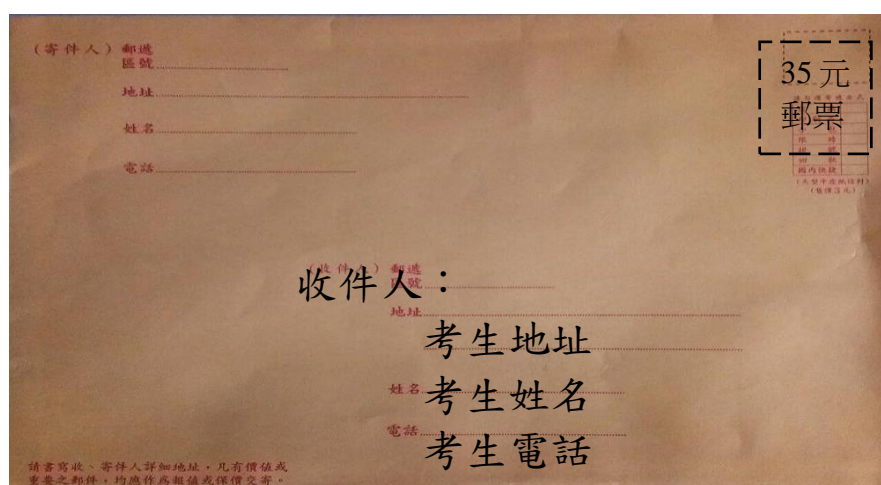 (寄件人)郵遞
區號
地址
姓名
電話
35元
郵票
國內快捷
(售價3元)
(收件人)郵遞
區號
收件人:
地址
考生地址
姓名
考生姓名
電話
考生電話
請書寫收、寄件人詳細地址,凡有價值或
重要之郵件,均應作為報值或保價交寄。